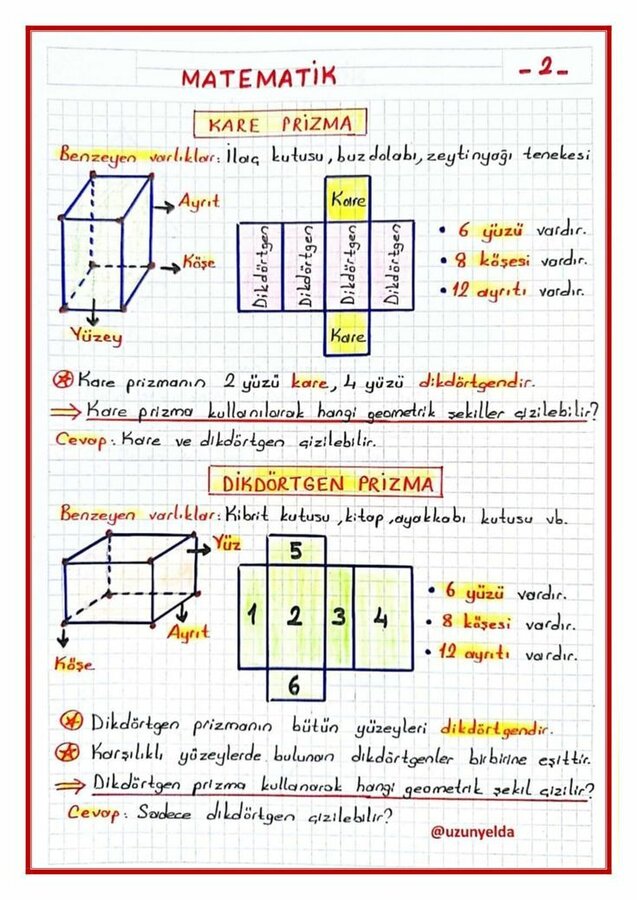 MATEMATİK
- 2 -
KARE PRİZMA
Benzeyen varlıklar: İlaç kutusu, buzdolabı, zeytinyağı tenekesi
Ayrıt
Köşe
Yüzey
Kare
Dikdörtgen
Dikdörtgen
Dikdörtgen
Dikdörtgen
Kare
• 6 yüzü vardır.
• 8 köşesi vardır.
• 12 ayrıtı vardır.
Kare prizmanın 2 yüzü kare, 4 yüzü dikdörtgendir.
⇒ Kare prizma kullanılarak hangi geometrik şekiller çizilebilir?
Cevap: Kare ve dikdörtgen çizilebilir.
DİKDÖRTGEN PRİZMA
Benzeyen varlıklar: Kibrit kutusu, kitap, ayakkabı kutusu vb.
Yüz
Ayrıt
Köşe
5
1
2
3
4
6
• 6 yüzü vardır.
• 8 köşesi vardır.
• 12 ayrıtı vardır.
Dikdörtgen prizmanın bütün yüzeyleri dikdörtgendir.
Karşılıklı yüzeylerde bulunan dikdörtgenler birbirine eşittir.
⇒ Dikdörtgen prizma kullanarak hangi geometrik şekil çizilir?
Cevap: Sadece dikdörtgen çizilebilir?
@uzunyelda